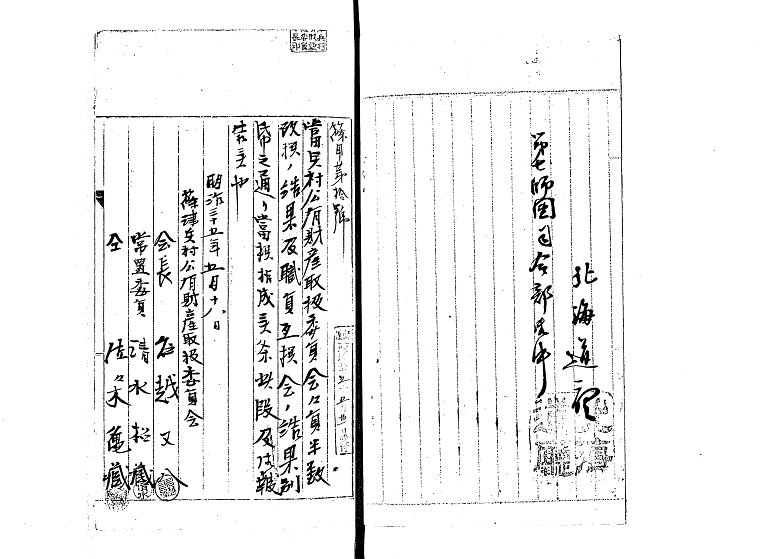 第七師團司令部御中
北海道廳
篠甲第拾號
當兵村公有財産取扱委員会々員半数
改撰ノ結果及職員互撰会ノ結果別
帋之通リ當撰相成候条此段及御報
告候也
明治三十五年五月十八日
篠津兵村公有財産取扱委員会
会長 石越又八
常置委員 清水松藏
仝 佐々木亀藏